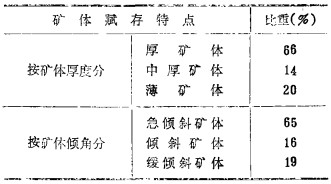 矿体赋存特点 比重(%)
厚矿体 66
按矿体厚度分 中厚矿体 14
薄矿体 20
急倾斜矿体 65
按矿体倾角分 倾斜矿体 16
缓倾斜矿体 19